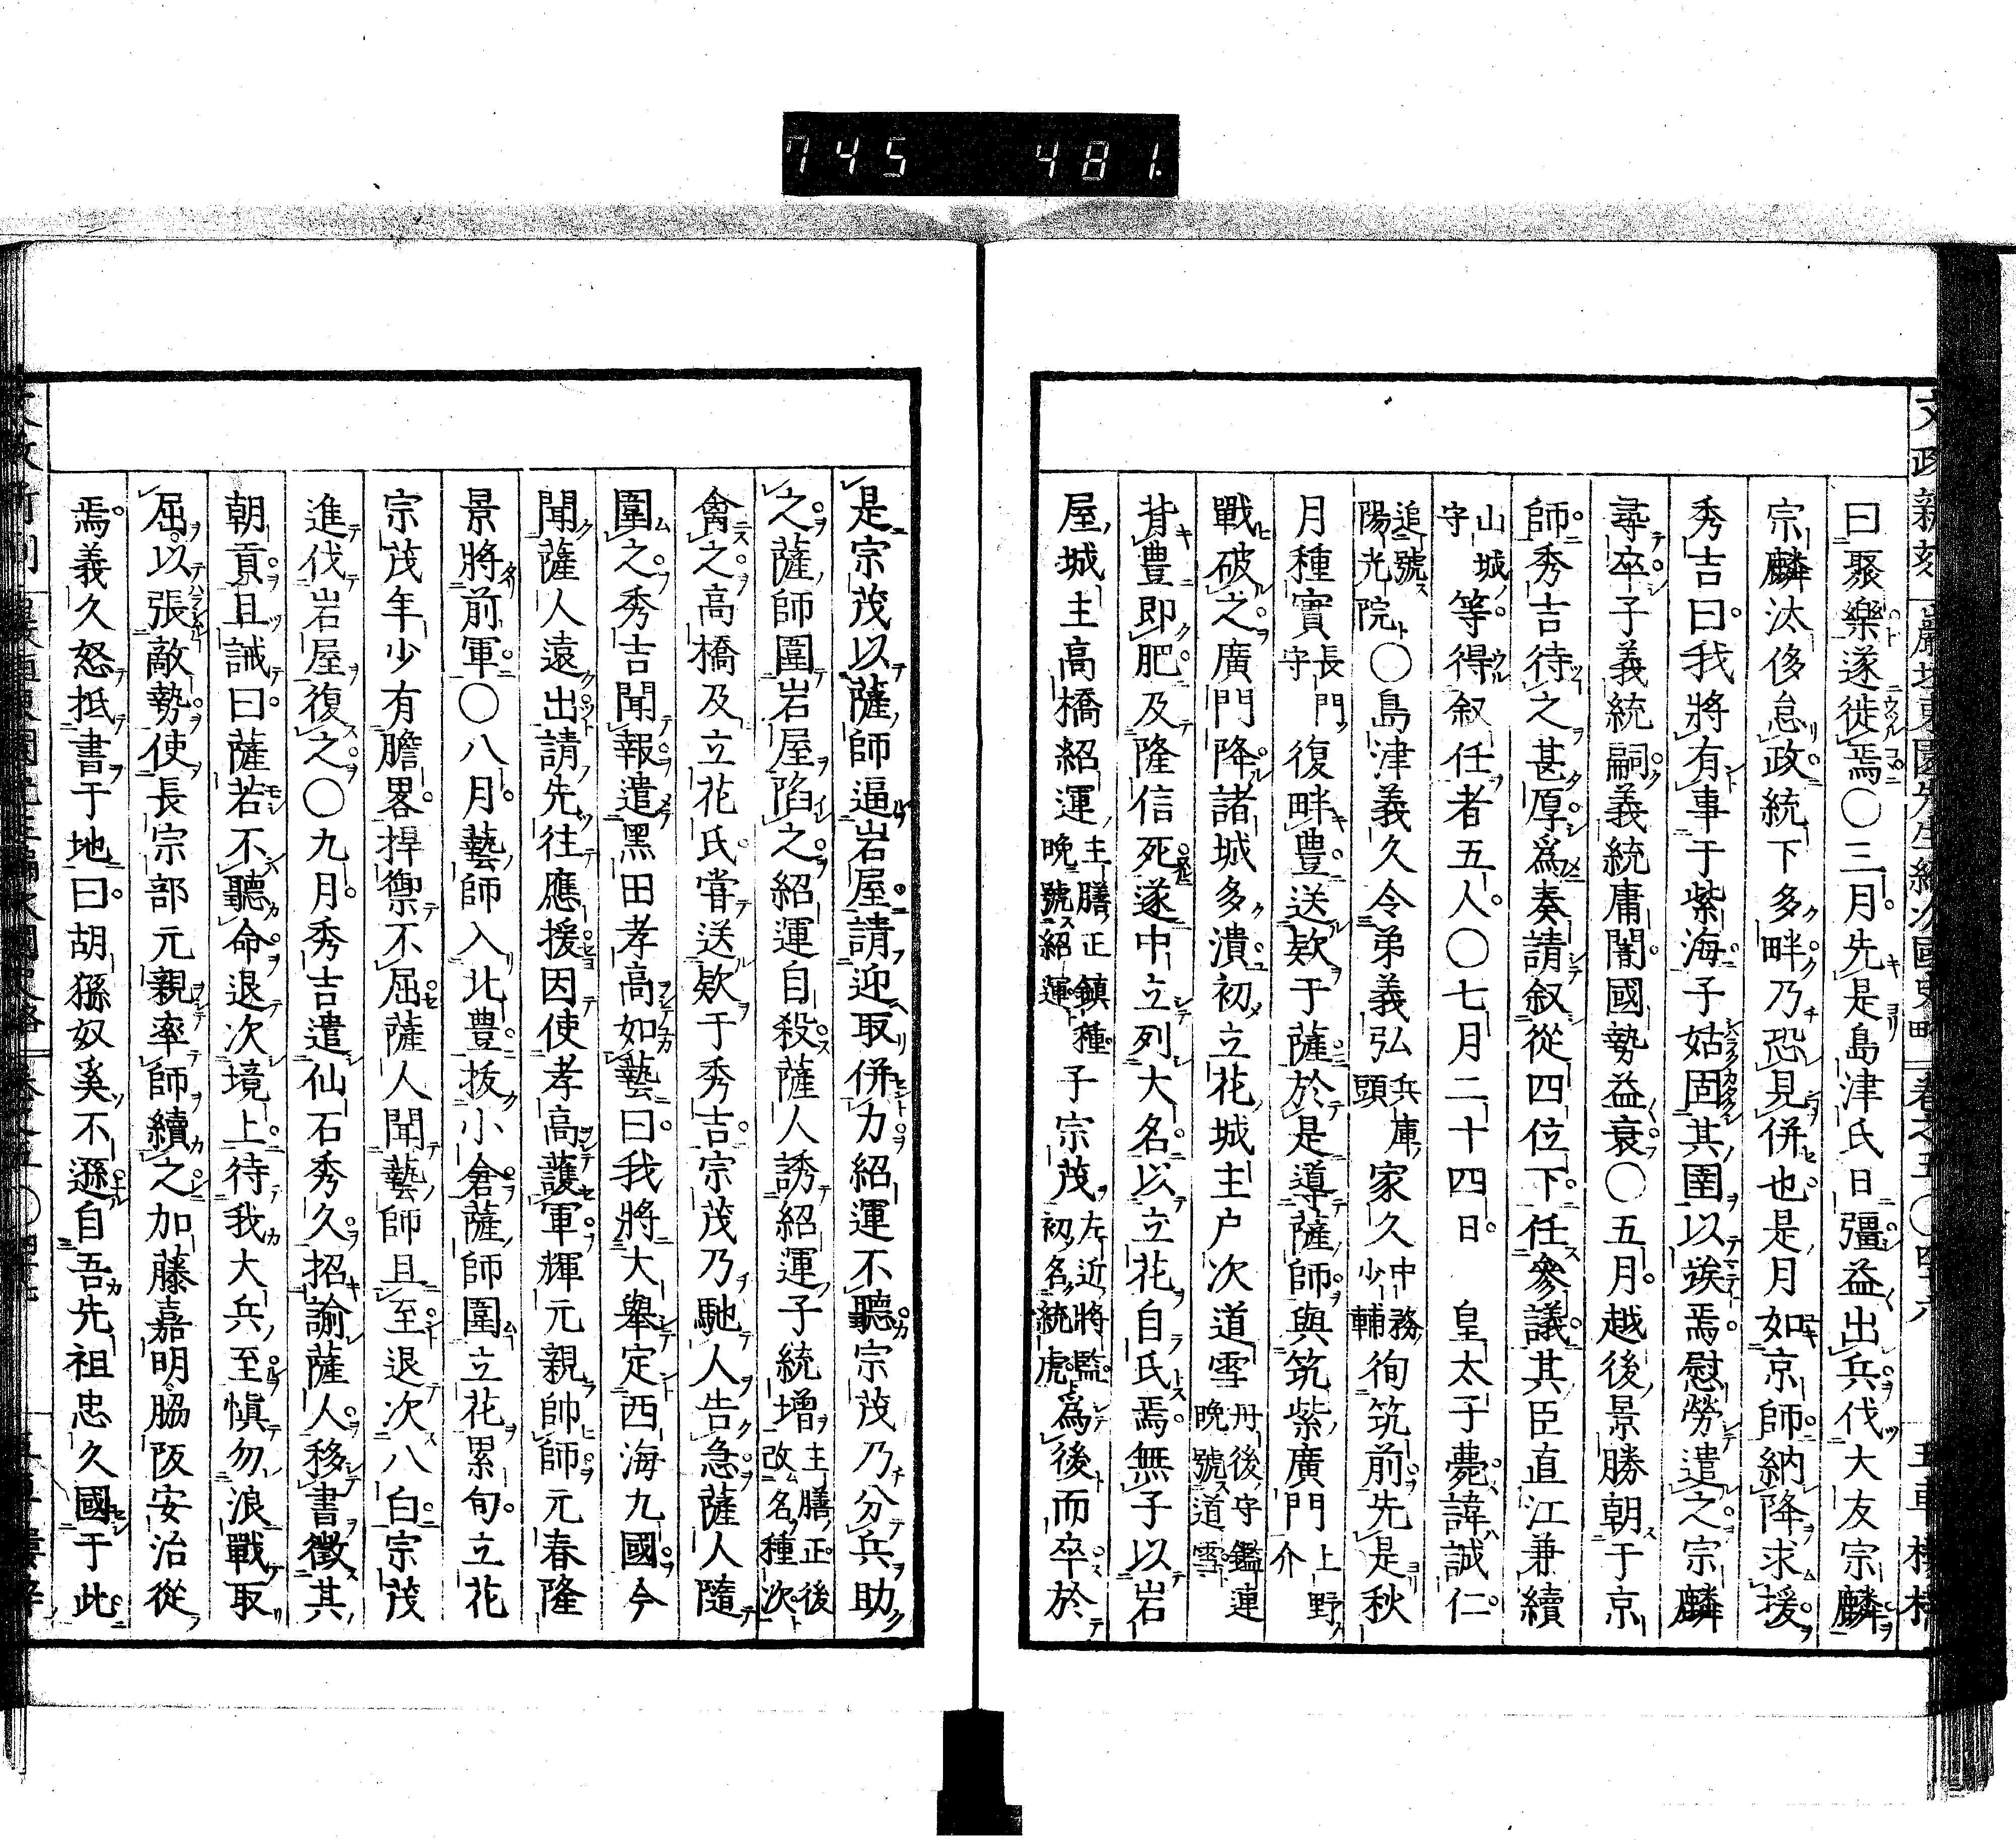 745 481.
曰聚樂遂徙焉○三月先是島津氏日彊益出兵伐大友宗麟
宗麟汰侈怠政統下多畔乃恐見併也是月如京師納降求援
秀吉曰我將有事于紫海子姑固其圉以竢焉慰勞遣之宗麟
尋卒子義統嗣義統庸闇國勢益衰○五月越後景勝朝于京
師秀吉待之甚厚爲奏請叙從四位下任參議其臣直江兼續
山城守等得叙任者五人○七月二十四日 皇太子薨諱誠仁
追號陽光院○島津義久令弟義弘兵庫頭家久中務少輔徇筑前先是秋
月種實長門守復畔豊送欵于薩於是導薩師與筑紫廣門上野介
戰破之廣門降諸城多潰初立花城主戸次道雪丹後守鑑連晩號道雪
背豊即肥及隆信死遂中立列大名以立花自氏焉無子以岩
屋城主高橋紹運主膳正鎮種晩號紹運子宗茂左近將監初名統虎爲後而卒於
是宗茂以薩師逼岩屋請迎取併力紹運不聽宗茂乃分兵助
之薩師圍岩屋陷之紹運自殺薩人誘紹運子統增主膳正後改名種次
禽之高橋及立花氏嘗送欵于秀吉宗茂乃馳人告急薩人隨
圍之秀吉聞報遣黑田孝高如藝曰我將大舉定西海九國今
聞薩人遠出請先往應援因使孝高護軍輝元親帥師元春隆
景將前軍○八月藝師入北豊拔小倉薩師圍立花累旬立花
宗茂年少有膽畧捍禦不屈薩人聞藝師且至退次八白宗茂
進伐岩屋復之○九月秀吉遣仙石秀久招諭薩人移書徴其
朝貢且誡曰薩若不聽命退次境上待我大兵至愼勿浪戰取
屈以張敵勢使長宗部元親率師續之加藤嘉明脇阪安治從
焉義久怒抵書于地曰胡猻奴奚不遜自吾先祖忠久國于此